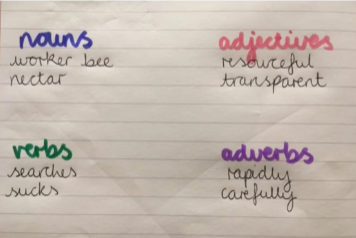 nouns
worker bee
nectar
adjectives
resourceful
transparent
verbs
searches
sucks
adverbs
rapidly
carefully